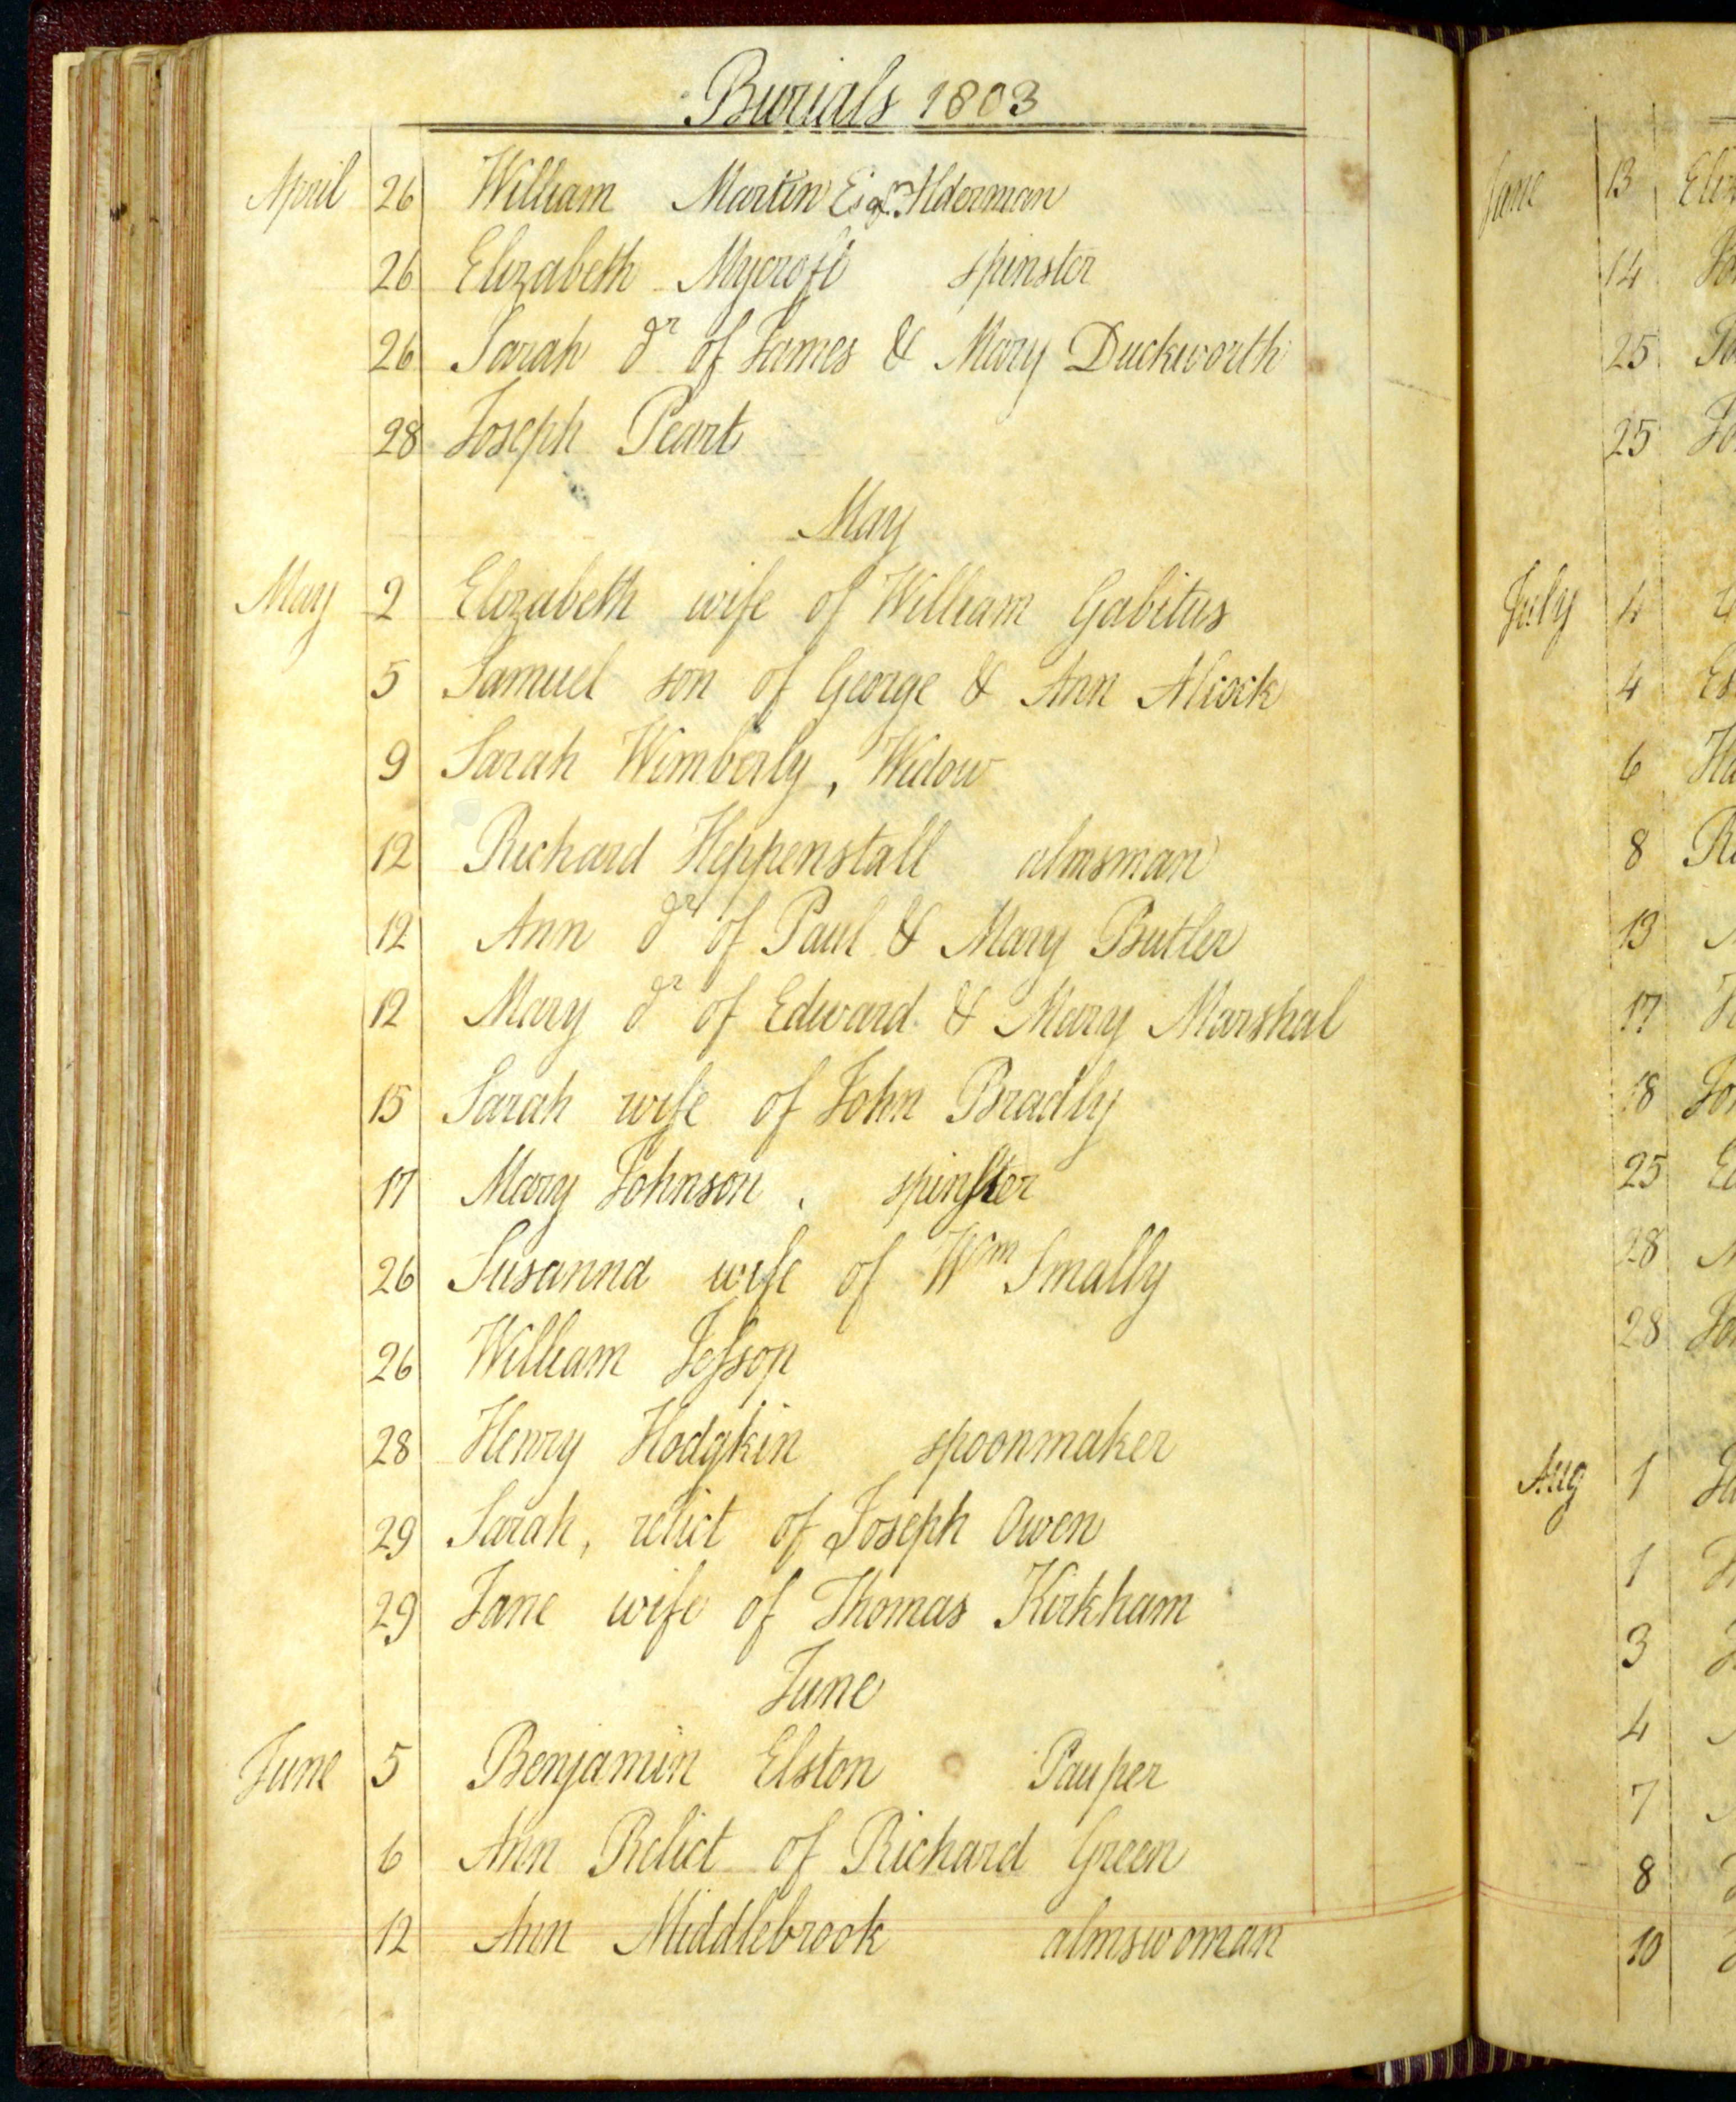 Burials 1803
April 26 William Martin Esqr. Alderman
26 Elizabeth Mycroft spinster
26 Sarah dr of James & Mary Duckworth
28 Joseph Peart
May
May 2 Elizabeth wife of William Gabitus
5 Samuel son of George & Ann Alcock
9 Sarah Wimberly, Widow
12 Richard Heppenstall almsman
12 Ann dr of Paul & Mary Butler
12 Mary dr of Edward & Mary Marshal
15 Sarah wife of John Bradly
17 Mary Johnson . spinster
26 Susanna wife of Wm Smally
26 William Jesson
28 Henry Hodgkin spoonmaker
29 Sarah, relict of Joseph Owen
29 Jane wife of Thomas Kirkham
June
June 5 Benjamin Elston Pauper
6 Ann Relict of Richard Green
12 Ann Middlebrook almswoman
June 13
14
25
25
July 4
4
6
8
13
17
18
25
28
28
Aug 1
1
3
4
7
8
10